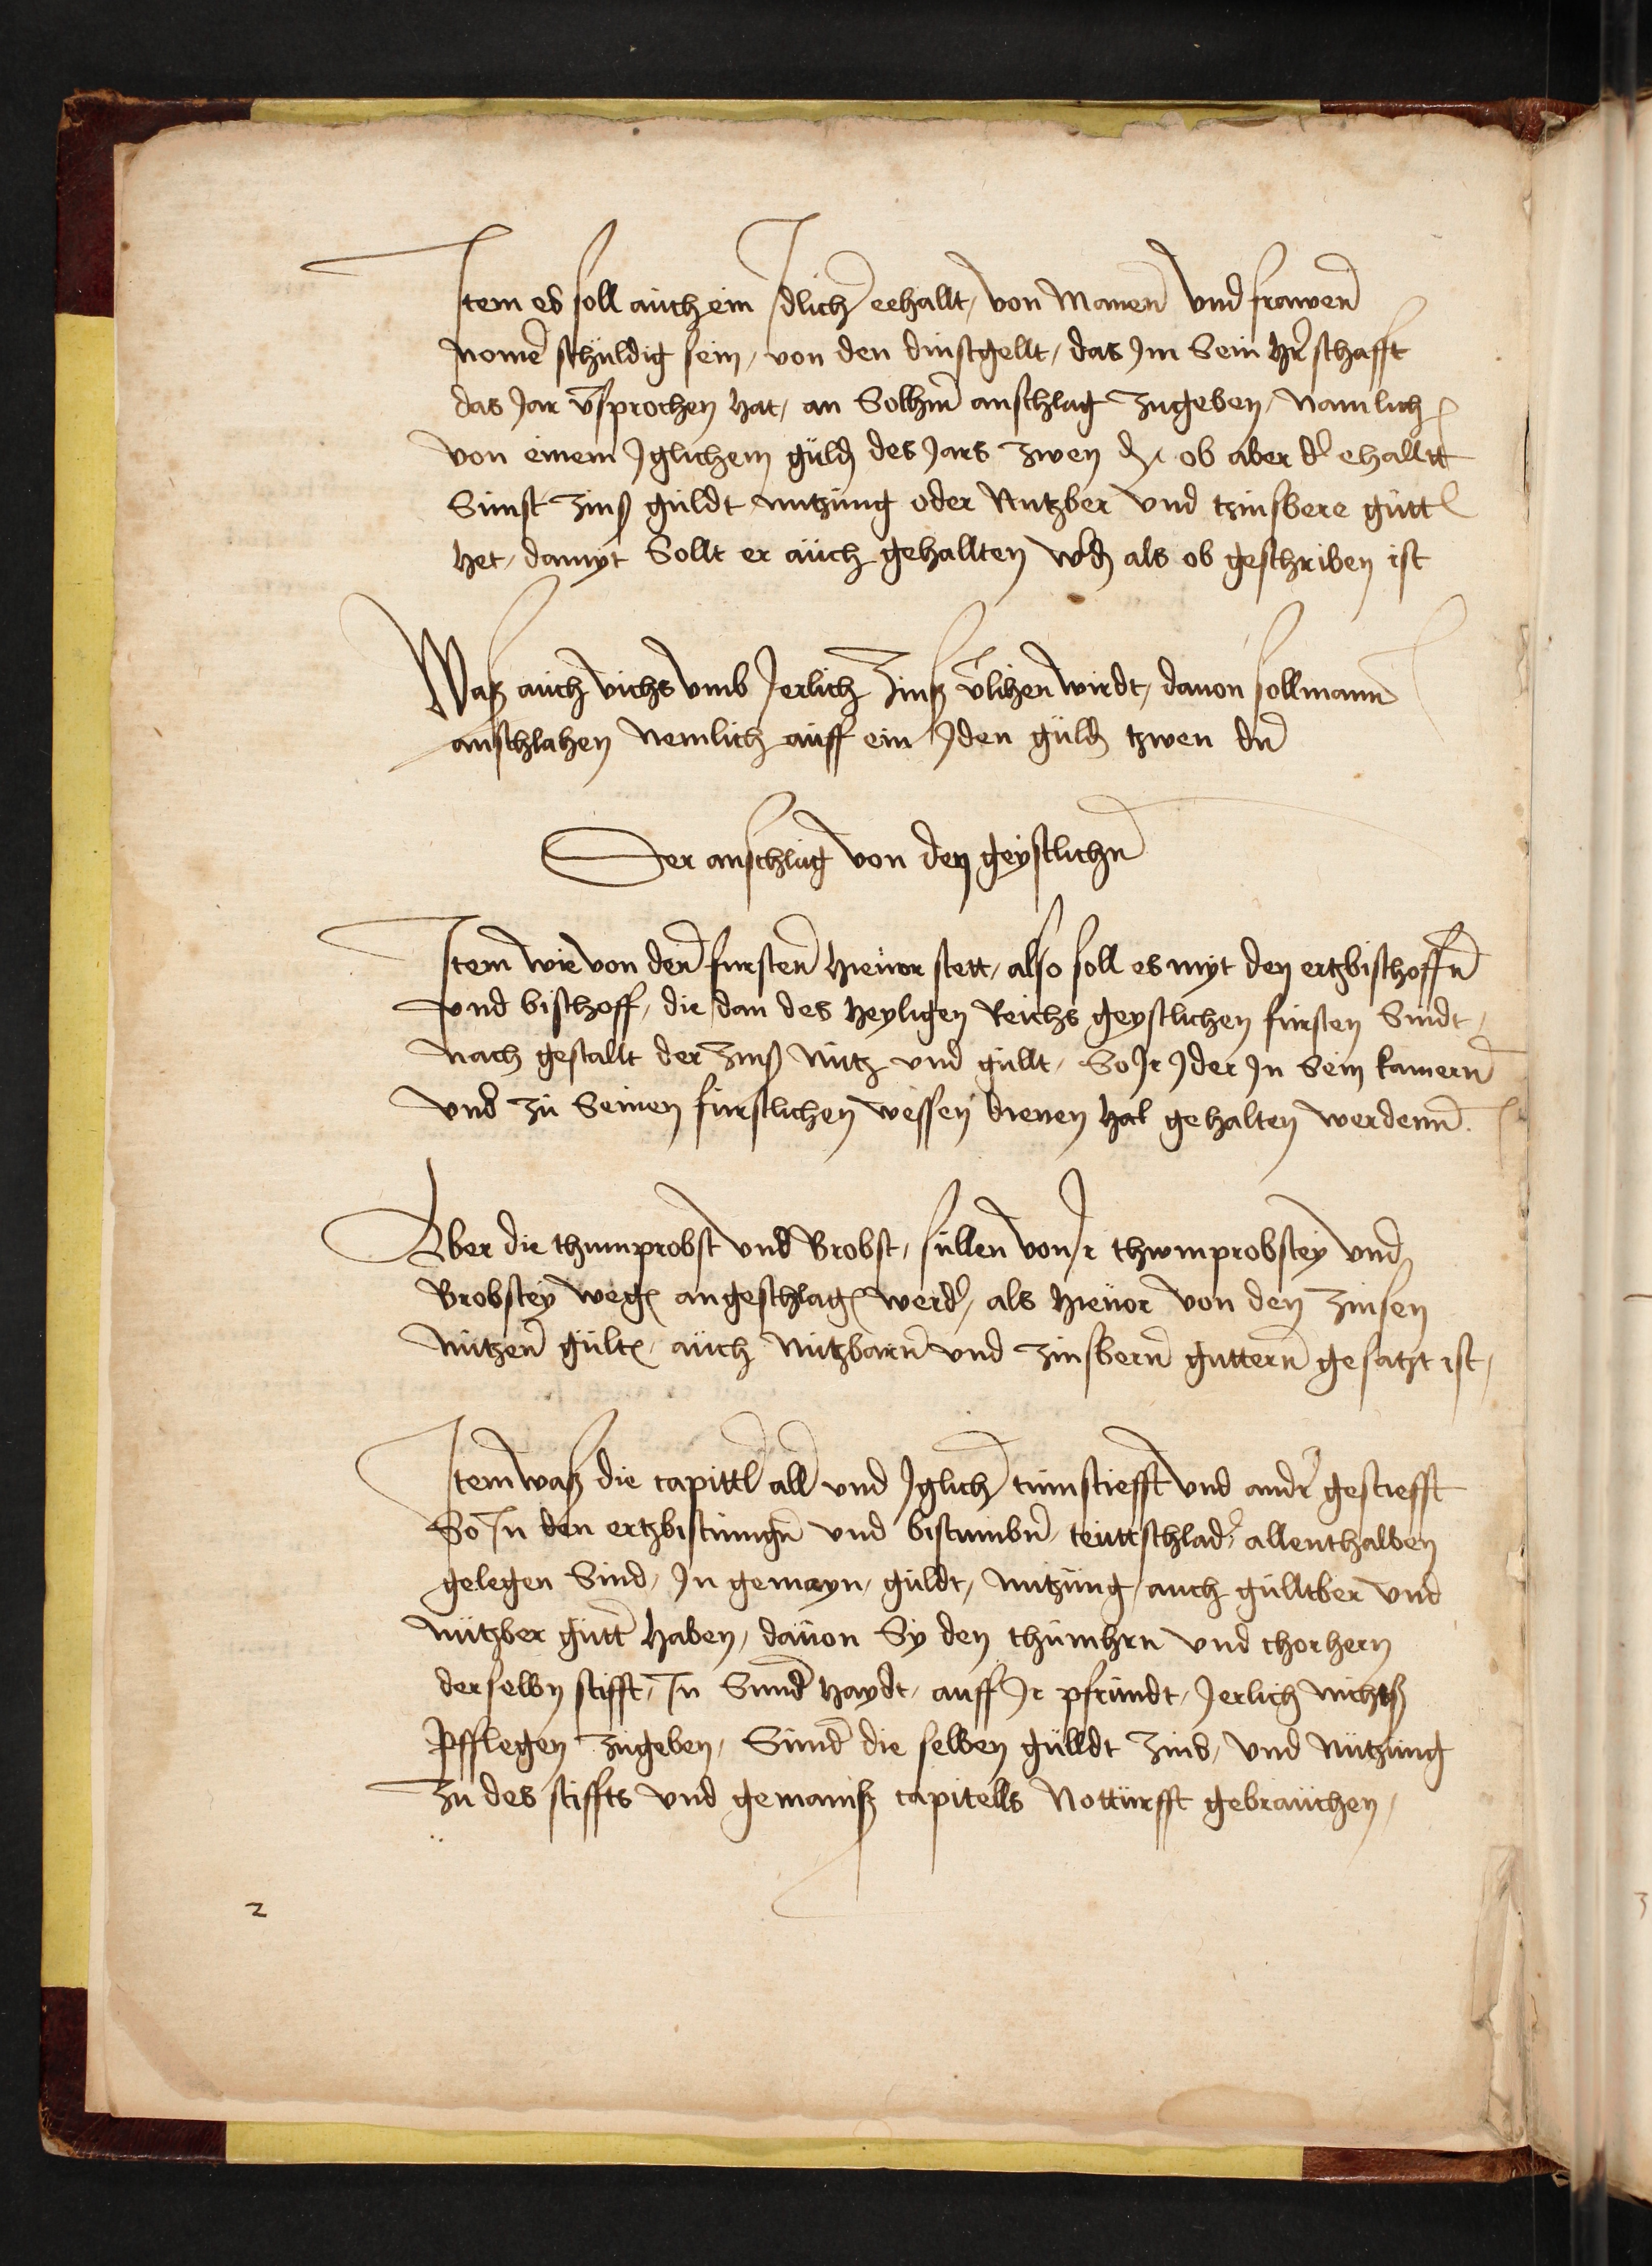 Item es soll auch ein Idlich eehallt, von Manen und frawen
nomē schuldig sein, von den dinstgellt, das Im Sein hr̄schafft
das Jar v̄sprochen hat, an Solhm̄ anschlag zugeben, Namlich
von einem Iglichem guld des Jars zwen ob aber d' ehalltt
Sunst zinß guldt nutzung oder Nutzber und tzinsbere gutt
het, damyt Sollt er auch gehallten wd als ob geschriben ist
Waß auch vichs vmb Jerlich Zinß v̄lihen wirdt, dauon soll mann
anschlahen Nemlich auff ein Iden guld tzwen dn̄
Der anschlag von den geystlichn̄
Item wie von den fursten hieuor stett, also soll es myt den ertzbischoffn̄
vnd bischoff, die dan des heyligen Reichs geystlichen fursten Sindt,
Nach gestallt der Zinß Nutz vnd gullt, So Ir Ider In Sein kamern̄
vnd zu Seinen furstlichen wessen dienen hat gehalten werdenn.
Aber die thumprobst vnd Brobst, sullen von Ir thwmprobstey vnd
Brobstey weg angeschlag werd', als hieuor von den Zinsen
Nutzen̄ gult, auch Nutzbarn̄ vnd Zinsbern̄ guttern̄ gesatzt ist,
Item waß die capittl all vnd Iglich tumstiefft vnd andr̄ gestiefft
So In den ertzbistumgn̄ vnd bistumbn̄, teuttschlad' allenthalben
gelegen Sind, In gemayn, guldt, Nutzung, auch gulltber vnd
nutzber gutt haben, dauon Sy den thumhrn vnd chorhern
derselbn stifft, In Sund haydt, auff Ir pfrundt, Jerlich nichtß
Pfflegen zugeben, Sund die selben gulldt Zins, vnd Nutzung
Zu des stiffts vnd gemainß capitells Notturfft gebrauchen,
2
3